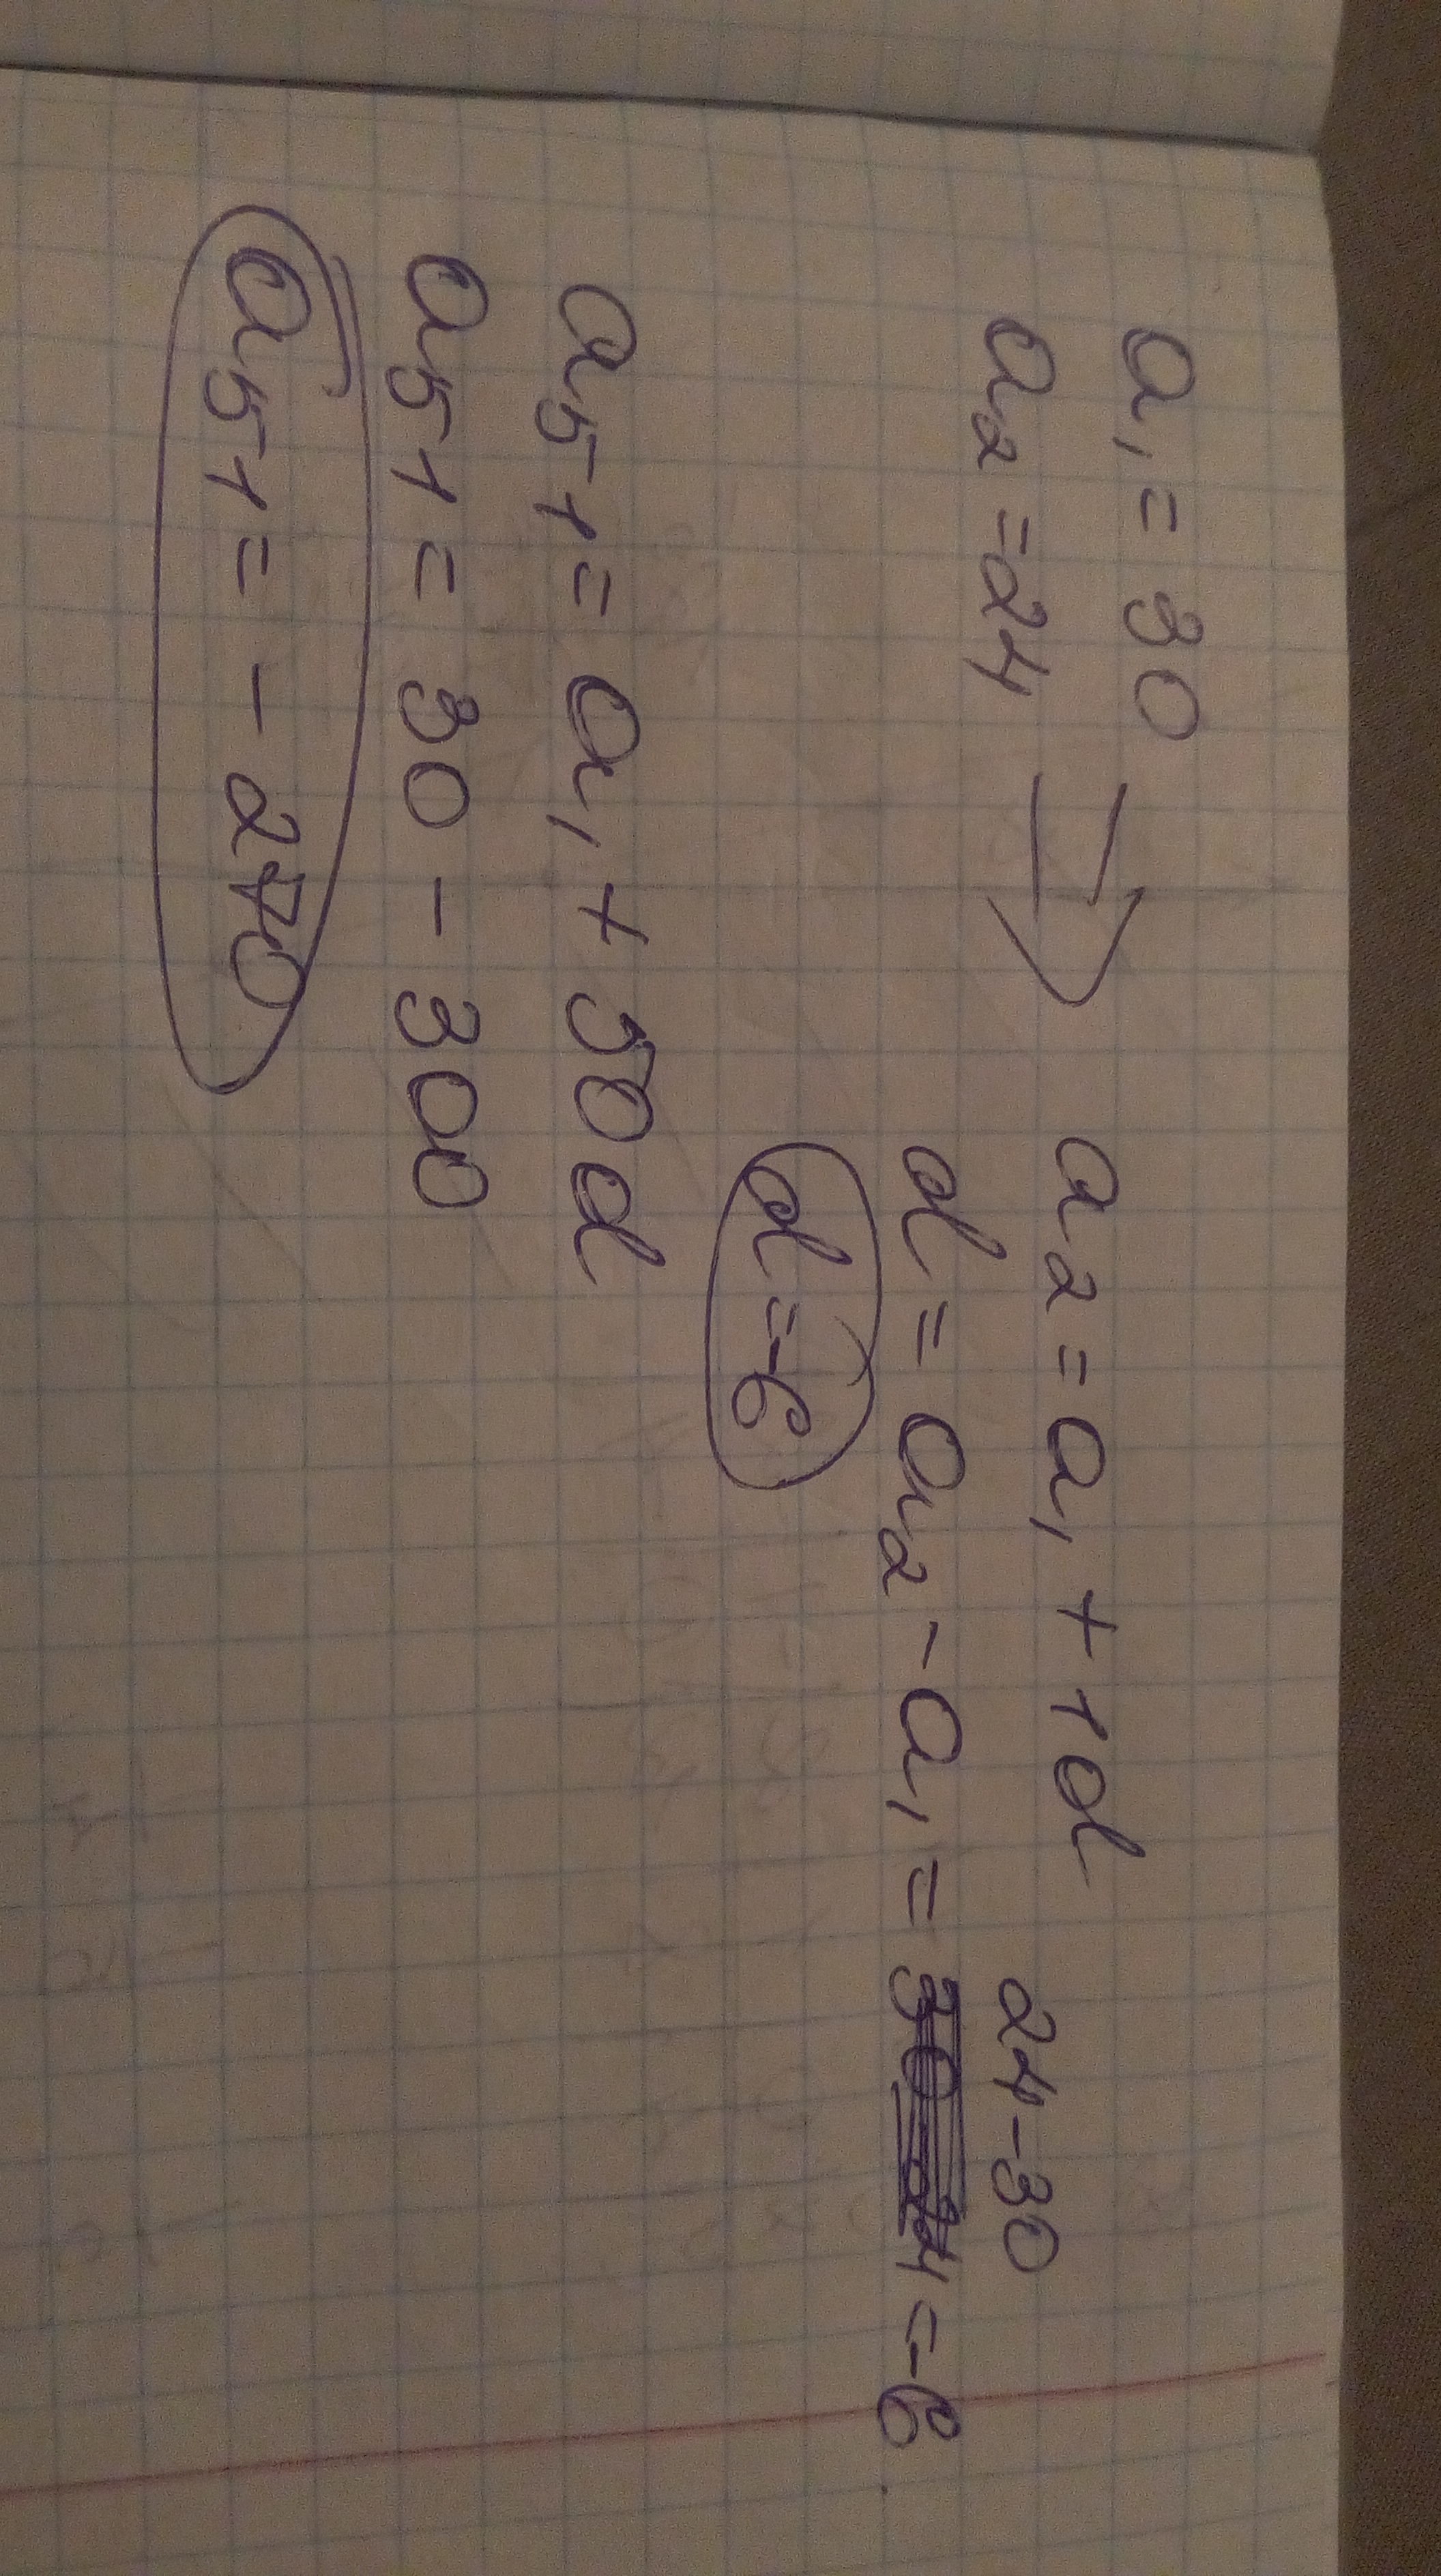 a₁ = 30
a₂ = 24 ⇒ a₂ = a₁ + 1d
24 - 30
d = a₂ - a₁ = 30 - 24 = -6
d = -6
a₅₁ = a₁ + 50d
a₅₁ = 30 - 300
a₅₁ = -270